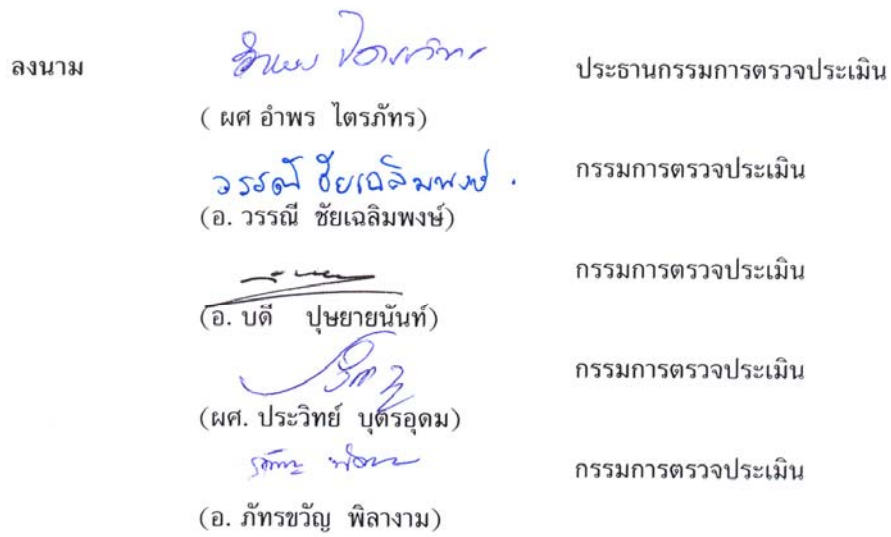 ลงนาม ประธานกรรมการตรวจประเมิน
( ผศ อำพร ไตรภัทร)
วรรณี ชัยเฉลิมพงษ์ กรรมการตรวจประเมิน
(อ. วรรณี ชัยเฉลิมพงษ์)
กรรมการตรวจประเมิน
(อ. บดี ปุษยายนันท์)
กรรมการตรวจประเมิน
(ผศ. ประวิทย์ บุตรอุดม)
กรรมการตรวจประเมิน
(อ. ภัทรขวัญ พิลางาม)